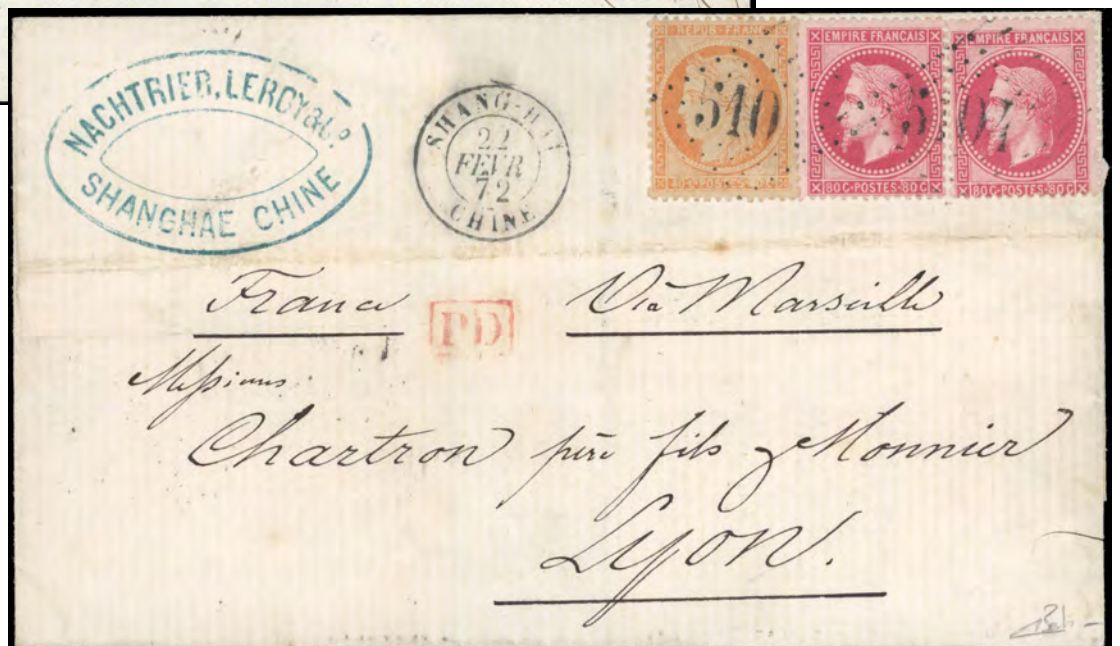 NACHTRIER, LEROY & Co.
SHANGHAE CHINE
SHANG-HAI
22
FEVR
72
CHINE
REPUB. FRANC
40 C. POSTES 40 C.
5104
EMPIRE FRANÇAIS
80C-POSTES-80C
EMPIRE FRANÇAIS
80C-POSTES-80C
5104
France
PD
Via Marseille
Messieurs
Chartron père fils & Monnier
Lyon.